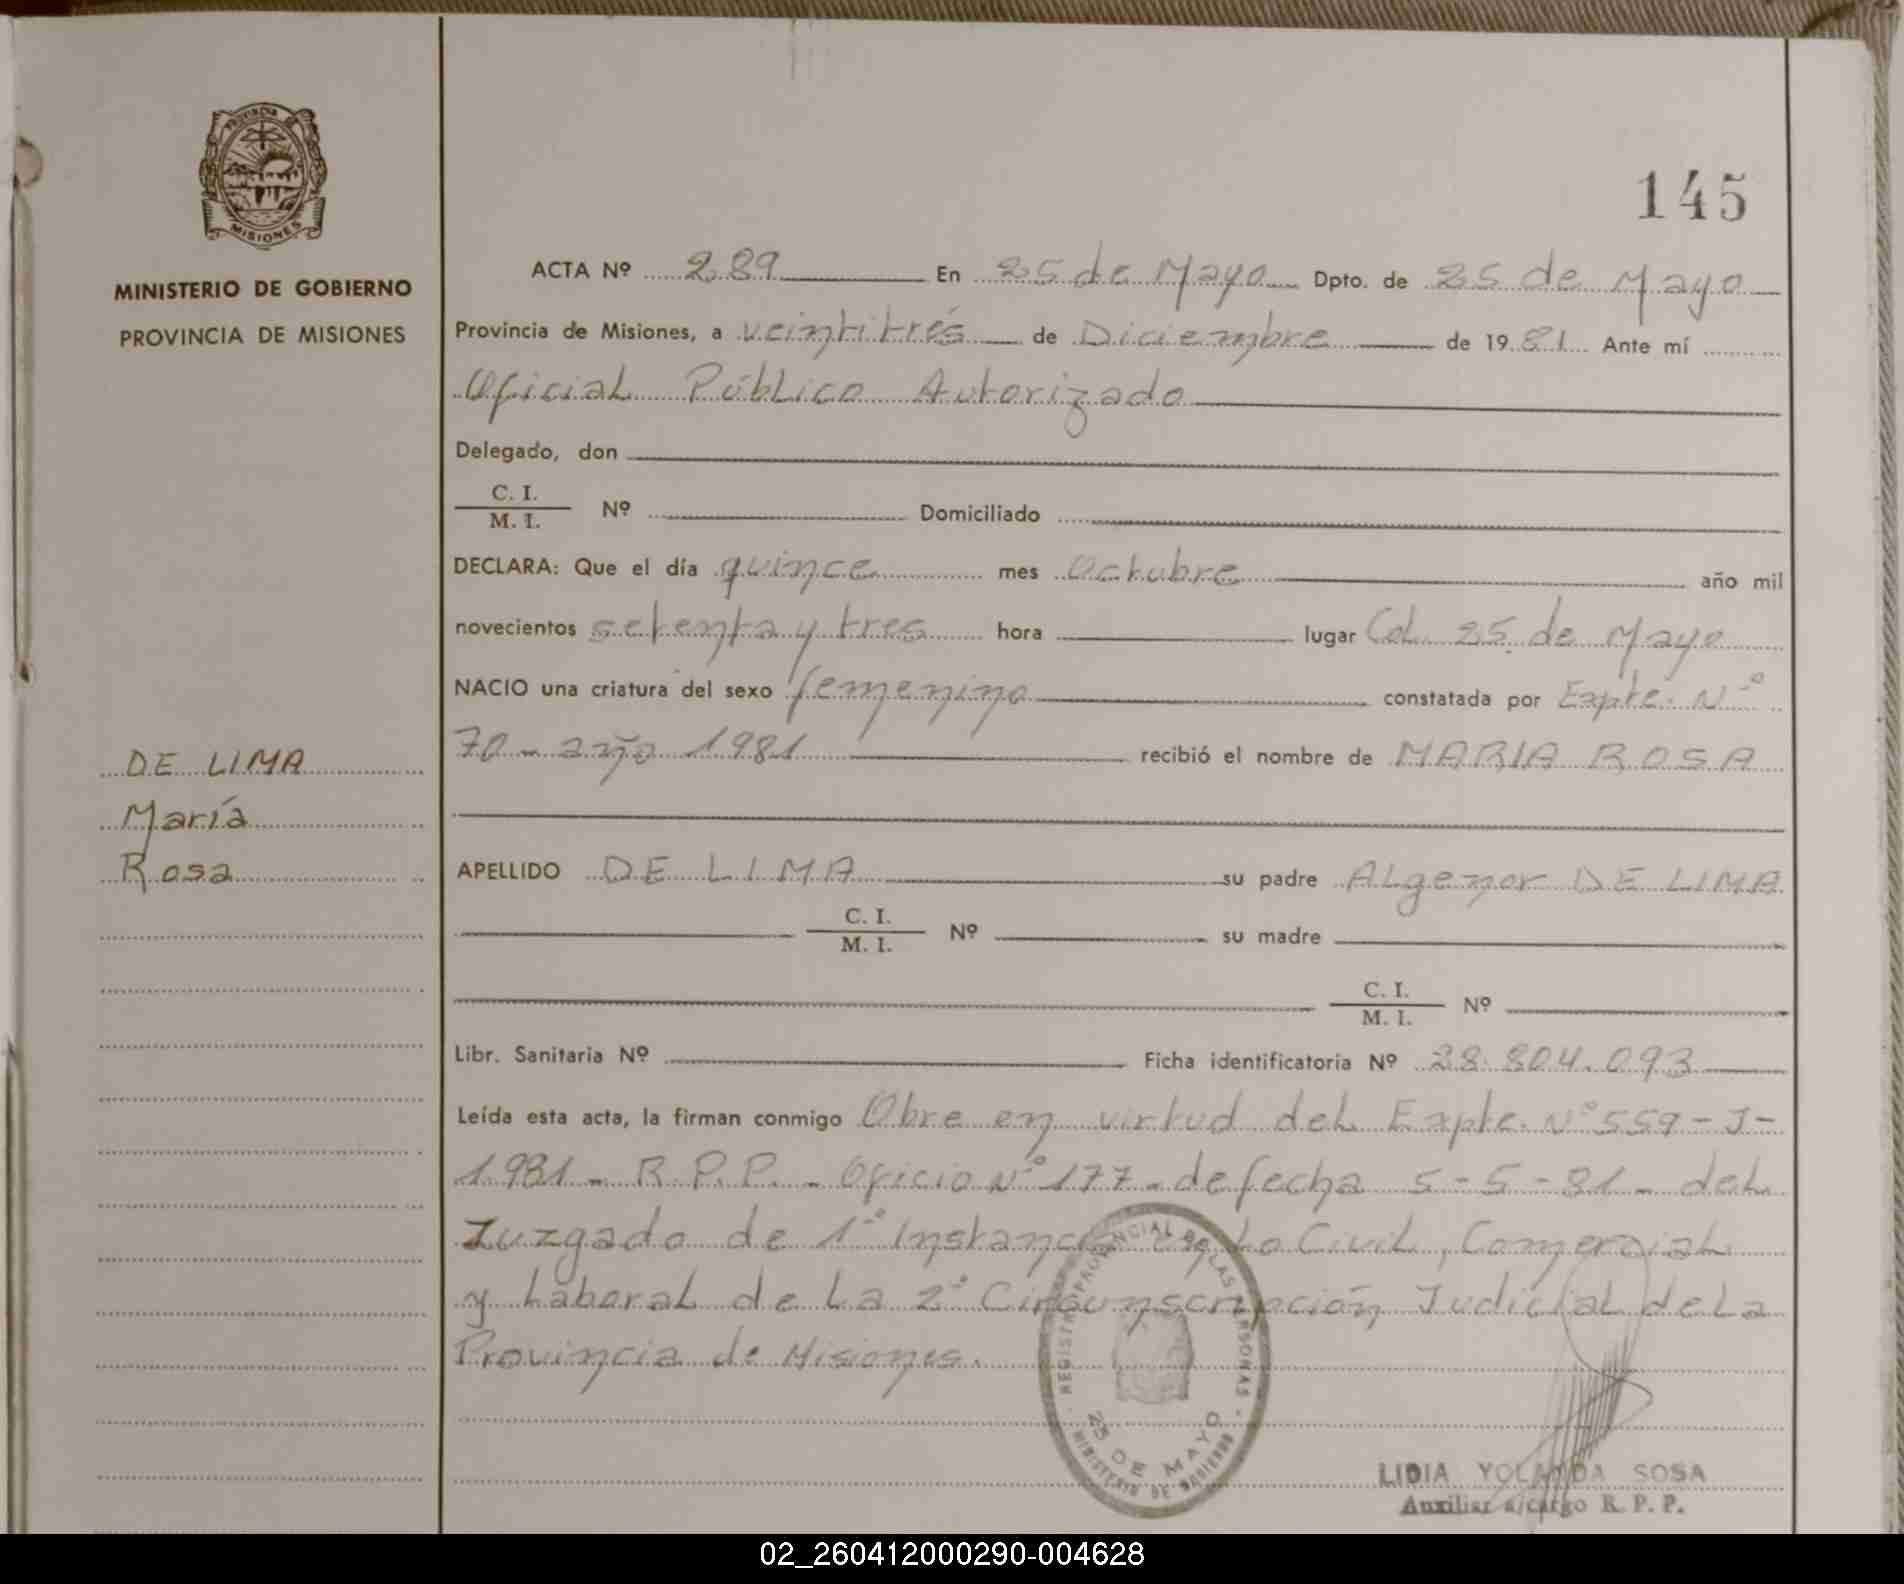 PROVINCIA DE
MISIONES
MINISTERIO DE GOBIERNO
PROVINCIA DE MISIONES
145
ACTA Nº 289 En 25 de Mayo Dpto. de 25 de Mayo
Provincia de Misiones, a veintitrés de Diciembre de 1981 Ante mí
Oficial Público Autorizado
Delegado, don
C. I.
M. I. Nº Domiciliado
DECLARA: Que el día quince mes Octubre año mil
novecientos setenta y tres hora lugar Col. 25 de Mayo
NACIO una criatura del sexo femenino constatada por Expte. Nº
70 - año 1981 recibió el nombre de MARIA ROSA
DE LIMA
María
Rosa
APELLIDO DE LIMA su padre ALgenor DE LIMA
C. I.
M. I. Nº su madre
C. I.
M. I. Nº
Libr. Sanitaria Nº Ficha identificatoria Nº 28.804.093
Leída esta acta, la firman conmigo Obre en virtud del Expte. Nº 559-J-
1981 - R.P.P. - Oficio Nº 177 - de fecha 5-5-81 - del
Juzgado de 1º Instancia en Lo Civil, Comercial
y Laboral de La 2º Circunscripción Judicial de La
Provincia de Misiones.
REGISTRO PROVINCIAL DE LAS PERSONAS
25 DE MAYO
MINISTERIO DE GOBIERNO
LIDIA YOLANDA SOSA
Auxiliar a/cargo R. P. P.
02_260412000290-004628